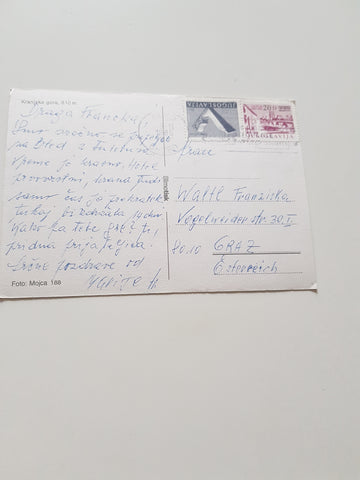 Kranjska gora, 810 m
Draga Francka!
Smo srečno se pripeljale
na Bled z
Vreme je krasno. Hotel
prvovrsten, hrana tudi
samo čas je prekratek
tukaj bi 14 dni
Kako ka Tebe gre? Si
pridna prijateljica.
Srčne pozdrave od
Foto: Mojca 188
JUGOSLAVIJA
JUGOSLAVIJA
Frau
Waltl Franziska
Vogelweider str. 30. II
8010 GRAZ
Österreich